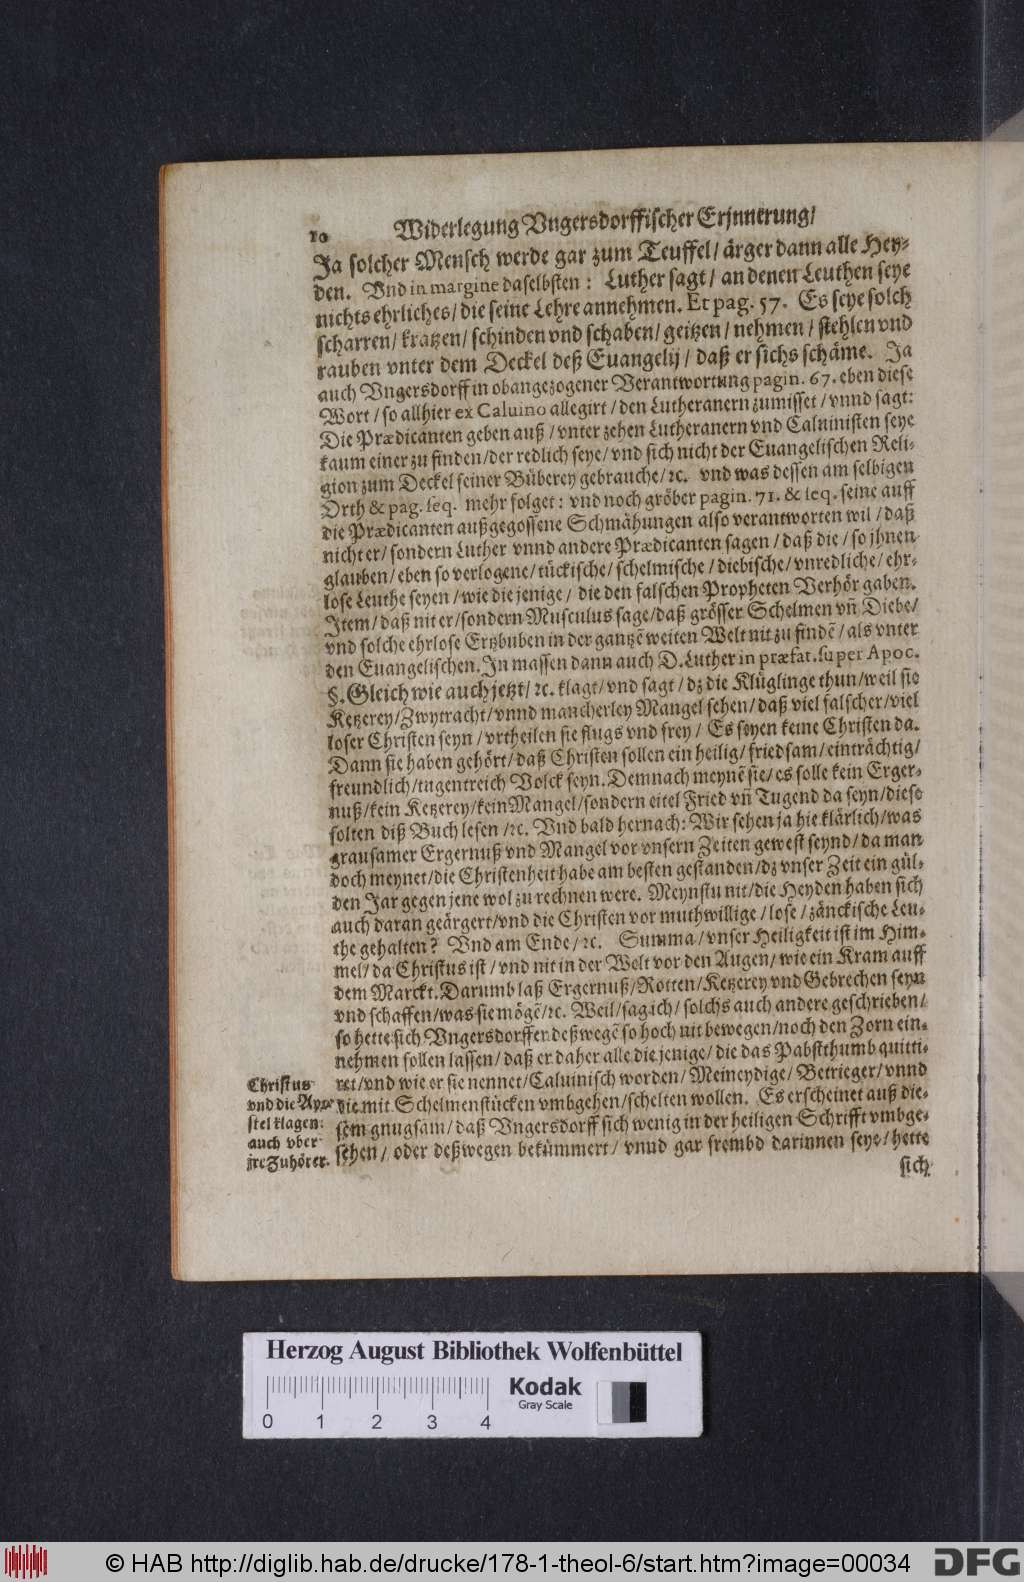 10 Widerlegung Vngersdorffischer Erjnnerung/
Ja solcher Mensch werde gar zum Teuffel/ ärger dann alle Hey-
den. Vnd in margine daselbsten: Luther sagt/ an denen Leuthen seye
nichts ehrliches/ die seine Lehre annehmen. Et pag. 57. Es seye solch
scharren/ kratzen/ schinden vnd schaben/ geitzen/ nehmen/ stehlen vnd
rauben vnter dem Deckel deß Euangelij/ daß er sichs schäme. Ja
auch Vngersdorff in obangezogener Verantwortung pagin. 67. eben diese
Wort/ so allhier ex Caluino allegirt/ den Lutheranern zumisset/ vnnd sagt:
Die Prædicanten geben auß/ vnter zehen Lutheranern vnd Caluinisten seye
kaum einer zu finden/ der redlich seye/ vnd sich nicht der Euangelischen Reli-
gion zum Deckel seiner Büberey gebrauche/ ꝛc. vnd was dessen am selbigen
Orth & pag. seq. mehr folget: vnd noch gröber pagin. 71. & seq. seine auff
die Prædicanten außgegossene Schmähungen also verantworten wil/ daß
nicht er/ sondern Luther vnnd andere Prædicanten sagen/ daß die/ so jhnen
glauben/ eben so verlogene/ tückische/ schelmische/ diebische/ vnredliche/ ehr-
lose Leuthe seyen/ wie die jenige/ die den falschen Propheten Verhör gaben.
Item/ daß nit er/ sondern Musculus sage/ daß grösser Schelmen vñ Diebe/
vnd solche ehrlose Ertzbuben in der gantzẽ weiten Welt nit zu findẽ/ als vnter
den Euangelischen. In massen dann auch D. Luther in præfat. super Apoc.
§. Gleich wie auch jetzt/ ꝛc. klagt/ vnd sagt/ dz die Klüglinge thun/ weil sie
Ketzerey/ Zwytracht/ vnnd mancherley Mangel sehen/ daß viel falscher/ viel
loser Christen seyn/ vrtheilen sie flugs vnd frey/ Es seyen keine Christen da.
Dann sie haben gehört/ daß Christen sollen ein heilig/ friedsam/ einträchtig/
freundlich/ tugentreich Volck seyn. Demnach meynẽ sie/ es solle kein Erger-
nuß/ kein Ketzerey/ kein Mangel/ sondern eitel Fried vñ Tugend da seyn/ diese
solten diß Buch lesen/ ꝛc. Vnd bald hernach: Wir sehen ja hie klärlich/ was
grausamer Ergernuß vnd Mangel vor vnsern Zeiten gewest seynd/ da man
doch meynet/ die Christenheit habe am besten gestanden/ dz vnser Zeit ein gül-
den Jar gegen jene wol zu rechnen were. Meynstu nit/ die Heyden haben sich
auch daran geärgert/ vnd die Christen vor muthwillige/ lose/ zänckische Leu-
the gehalten? Vnd am Ende/ ꝛc. Summa/ vnser Heiligkeit ist im Him-
mel/ da Christus ist/ vnd nit in der Welt vor den Augen/ wie ein Kram auff
dem Marckt. Darumb laß Ergernuß/ Rotten/ Ketzerey vnd Gebrechen seyn
vnd schaffen/ was sie mögẽ/ ꝛc. Weil/ sag ich/ solchs auch andere geschrieben/
so hette sich Vngersdorffer deßwegẽ so hoch nit bewegen/ noch den Zorn ein-
nehmen sollen lassen/ daß er daher alle die jenige/ die das Pabstthumb quitti-
ret/ vnd wie er sie nennet/ Caluinisch worden/ Meineydige/ Betrieger/ vnnd
die mit Schelmenstücken vmbgehen/ schelten wollen. Es erscheinet auß die-
sem gnugsam/ daß Vngersdorff sich wenig in der heiligen Schrifft vmbge-
sehen/ oder deßwegen bekümmert/ vnnd gar frembd darinnen seye/ hette
sich
Christus
vnd die Apo-
stel klagen
auch vber
jre Zuhörer.
Herzog August Bibliothek Wolfenbüttel
Kodak
Gray Scale
0 1 2 3 4
© HAB http://diglib.hab.de/drucke/178-1-theol-6/start.htm?image=00034
DFG